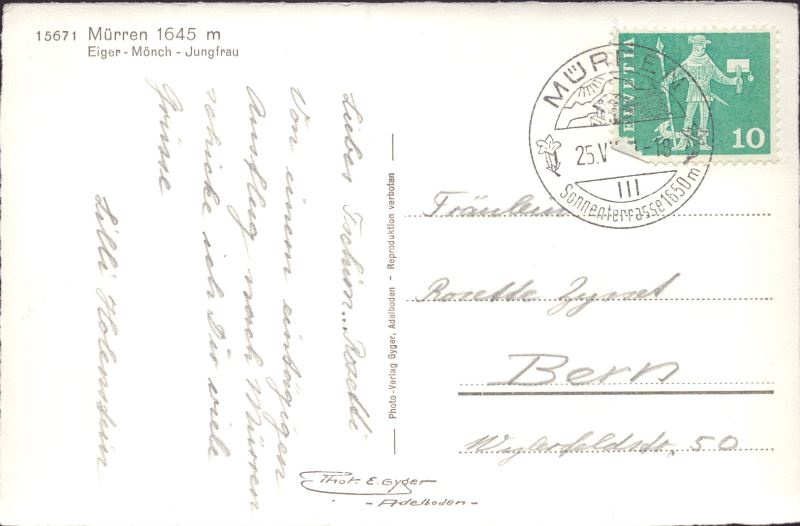 15671 Mürren 1645 m
Eiger - Mönch - Jungfrau
Liebes Rosetti
Von einem eintägigen
Ausflug nach Mürren
schicke ich Dir viele
Grüsse
Lilli Holenstein
Photo-Verlag Gyger, Adelboden - Reproduktion verboten
HELVETIA
10
MÜRREN
25.V
-18
III
Sonnenterrasse 1650m
Fräulein
Rosette Zysset
Bern
Wylerfeldstr, 50
Phot. E. Gyger
- Adelboden -